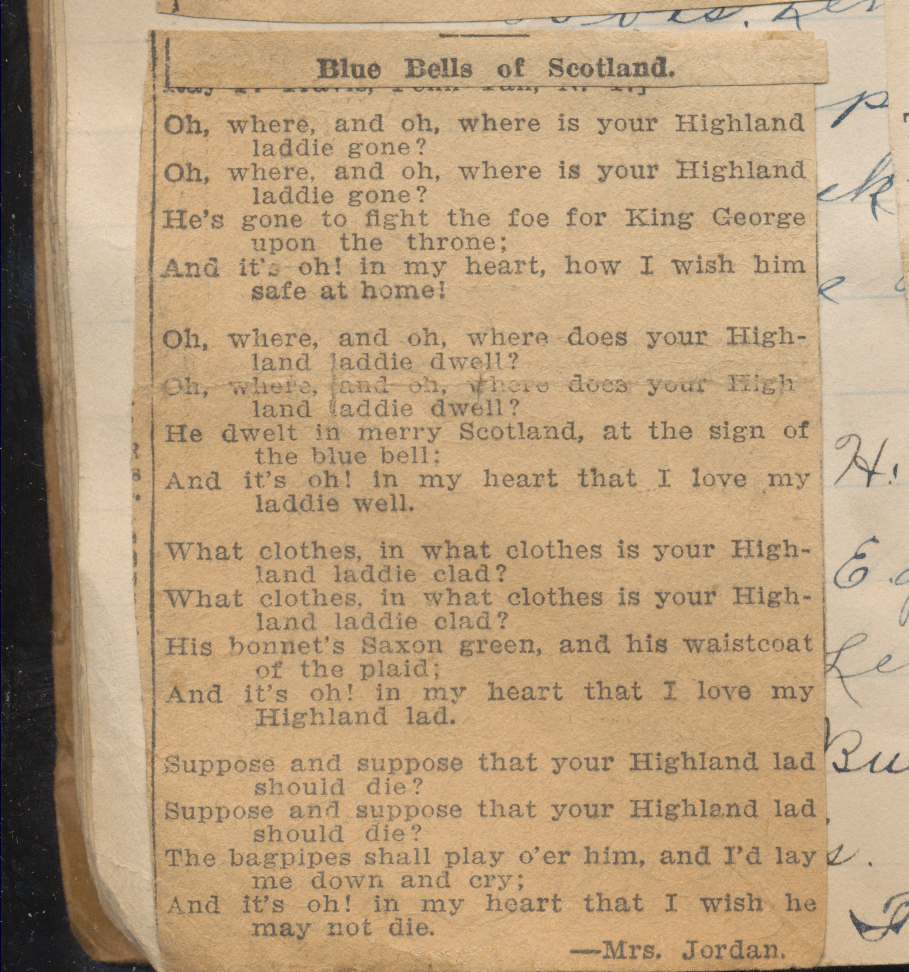 Blue Bells of Scotland.
Penn Yan, N. Y.]
Oh, where, and oh, where is your Highland
laddie gone?
Oh, where, and oh, where is your Highland
laddie gone?
He's gone to fight the foe for King George
upon the throne;
And it's oh! in my heart, how I wish him
safe at home!
Oh, where, and oh, where does your High-
land laddie dwell?
Oh, where, and oh, where does your High
land laddie dwell?
He dwelt in merry Scotland, at the sign of
the blue bell;
And it's oh! in my heart that I love my
laddie well.
What clothes, in what clothes is your High-
land laddie clad?
What clothes, in what clothes is your High-
land laddie clad?
His bonnet's Saxon green, and his waistcoat
of the plaid;
And it's oh! in my heart that I love my
Highland lad.
Suppose and suppose that your Highland lad
should die?
Suppose and suppose that your Highland lad
should die?
The bagpipes shall play o'er him, and I'd lay
me down and cry;
And it's oh! in my heart that I wish he
may not die.
—Mrs. Jordan.